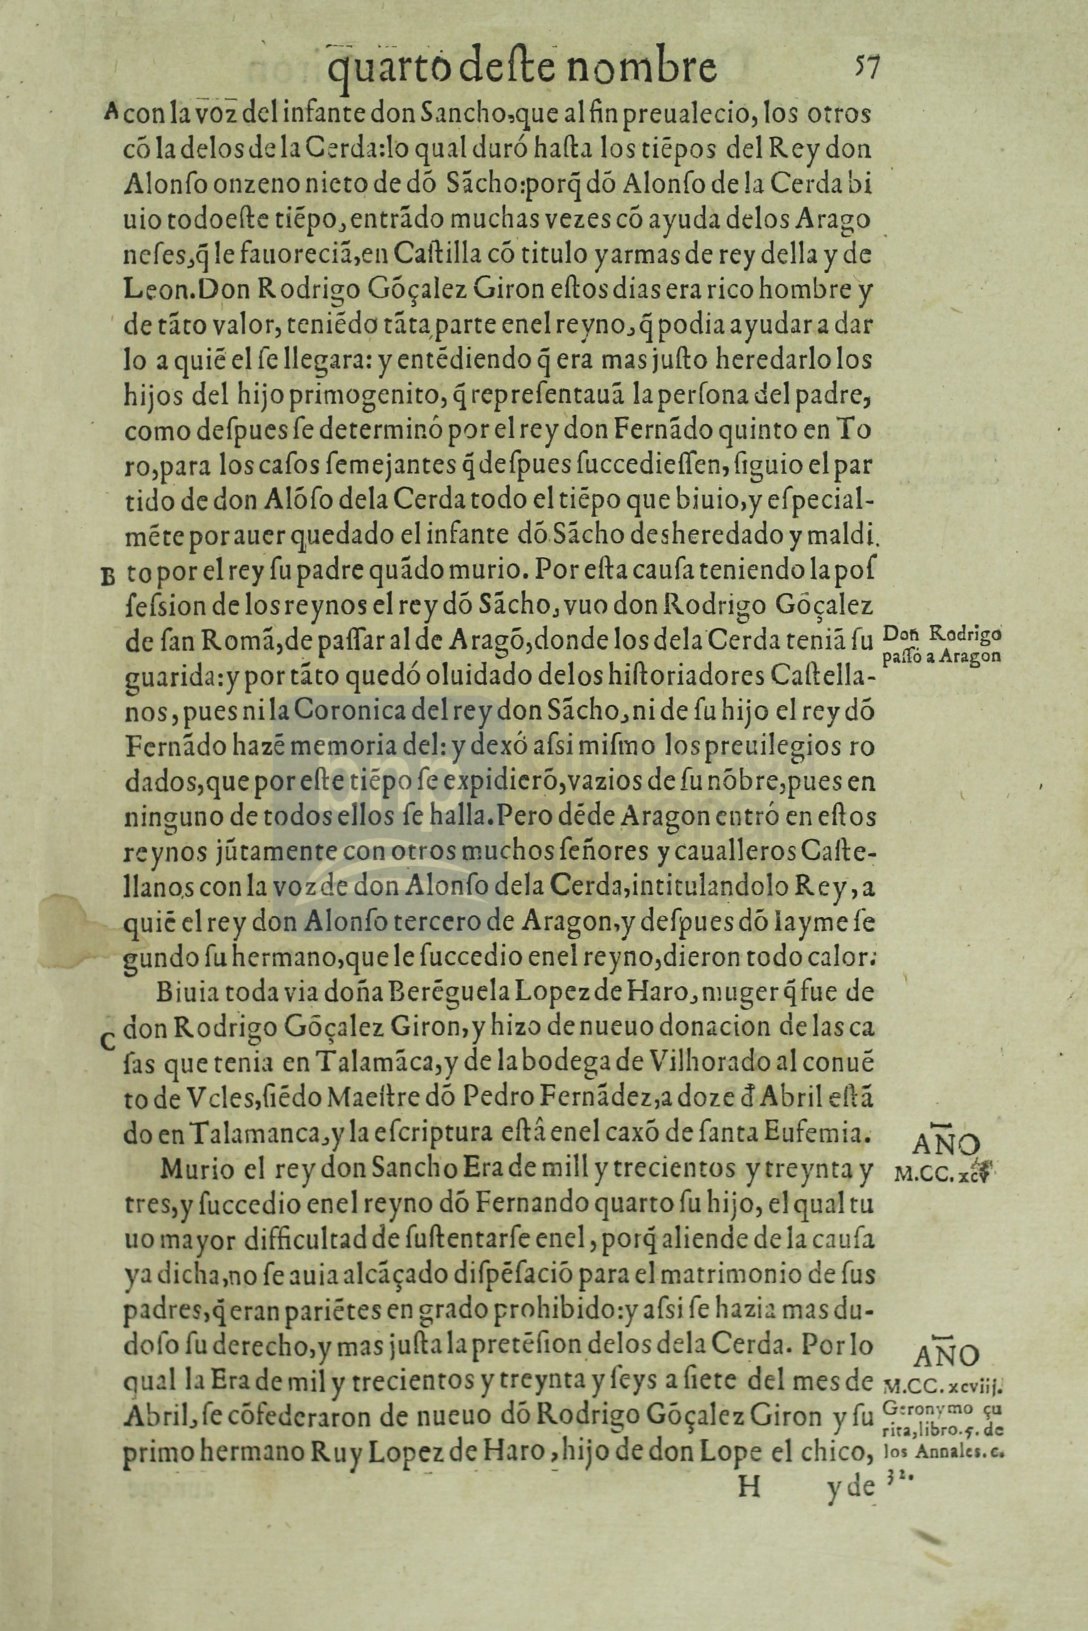 quarto deſte nombre 57
A con la voz del infante don Sancho, que al fin preualecio, los otros
cō la delos de la Cerda: lo qual duró haſta los tiēpos del Rey don
Alonſo onzeno nieto de dō Sācho: porq̄ dō Alonſo de la Cerda bi
uio todo eſte tiēpo, entrādo muchas vezes cō ayuda delos Arago
neſes, q̄ le fauoreciā, en Caſtilla cō titulo y armas de rey della y de
Leon. Don Rodrigo Gōçalez Giron eſtos dias era rico hombre y
de tāto valor, teniēdo tāta parte enel reyno, q̄ podia ayudar a dar
lo a quiē el ſe llegara: y entēdiendo q̄ era mas juſto heredarlo los
hijos del hijo primogenito, q̄ repreſentauā la perſona del padre,
como deſpues ſe determinó por el rey don Fernādo quinto en To
ro, para los caſos ſemejantes q̄ deſpues ſuccedieſſen, ſiguio el par
tido de don Alōſo dela Cerda todo el tiēpo que biuio, y eſpecial-
mēte por auer quedado el infante dō Sācho desheredado y maldi.
B to por el rey ſu padre quādo murio. Por eſta cauſa teniendo la poſ
ſeſsion de los reynos el rey dō Sācho, vuo don Rodrigo Gōçalez
de ſan Romā, de paſſar al de Aragō, donde los dela Cerda teniā ſu
Don Rodrigo
paſſó a Aragon
guarida: y por tāto quedó oluidado delos hiſtoriadores Caſtella-
nos, pues ni la Coronica del rey don Sācho, ni de ſu hijo el rey dō
Fernādo hazē memoria del: y dexó aſsi miſmo los preuilegios ro
dados, que por eſte tiēpo ſe expidierō, vazios de ſu nōbre, pues en
ninguno de todos ellos ſe halla. Pero dēde Aragon entró en eſtos
reynos jūtamente con otros muchos ſeñores y caualleros Caſte-
llanos con la voz de don Alonſo dela Cerda, intitulandolo Rey, a
quiē el rey don Alonſo tercero de Aragon, y deſpues dō Iayme ſe
gundo ſu hermano, que le ſuccedio enel reyno, dieron todo calor.
Biuia toda via doña Berēguela Lopez de Haro, muger q̄ fue de
C don Rodrigo Gōçalez Giron, y hizo de nueuo donacion de las ca
ſas que tenia en Talamāca, y de la bodega de Vilhorado al conuē
to de Vcles, ſiēdo Maeſtre dō Pedro Fernādez, a doze đ Abril eſtā
do en Talamanca, y la eſcriptura eſtâ enel caxō de ſanta Eufemia.
AÑO
M.CC.xcv
Murio el rey don Sancho Era de mill y trecientos y treynta y
tres, y ſuccedio enel reyno dō Fernando quarto ſu hijo, el qual tu
uo mayor difficultad de ſuſtentarſe enel, porq̄ aliende de la cauſa
ya dicha, no ſe auia alcāçado diſpēſaciō para el matrimonio de ſus
padres, q̄ eran pariētes en grado prohibido: y aſsi ſe hazia mas du-
doſo ſu derecho, y mas juſta la pretēſion delos dela Cerda. Por lo
AÑO
M.CC.xcviij.
qual la Era de mil y trecientos y treynta y ſeys a ſiete del mes de
Abril, ſe cōfederaron de nueuo dō Rodrigo Gōçalez Giron y ſu
primo hermano Ruy Lopez de Haro, hijo de don Lope el chico,
Geronymo çu
rita, libro. 5. de
los Annales. c.
32.
H y de